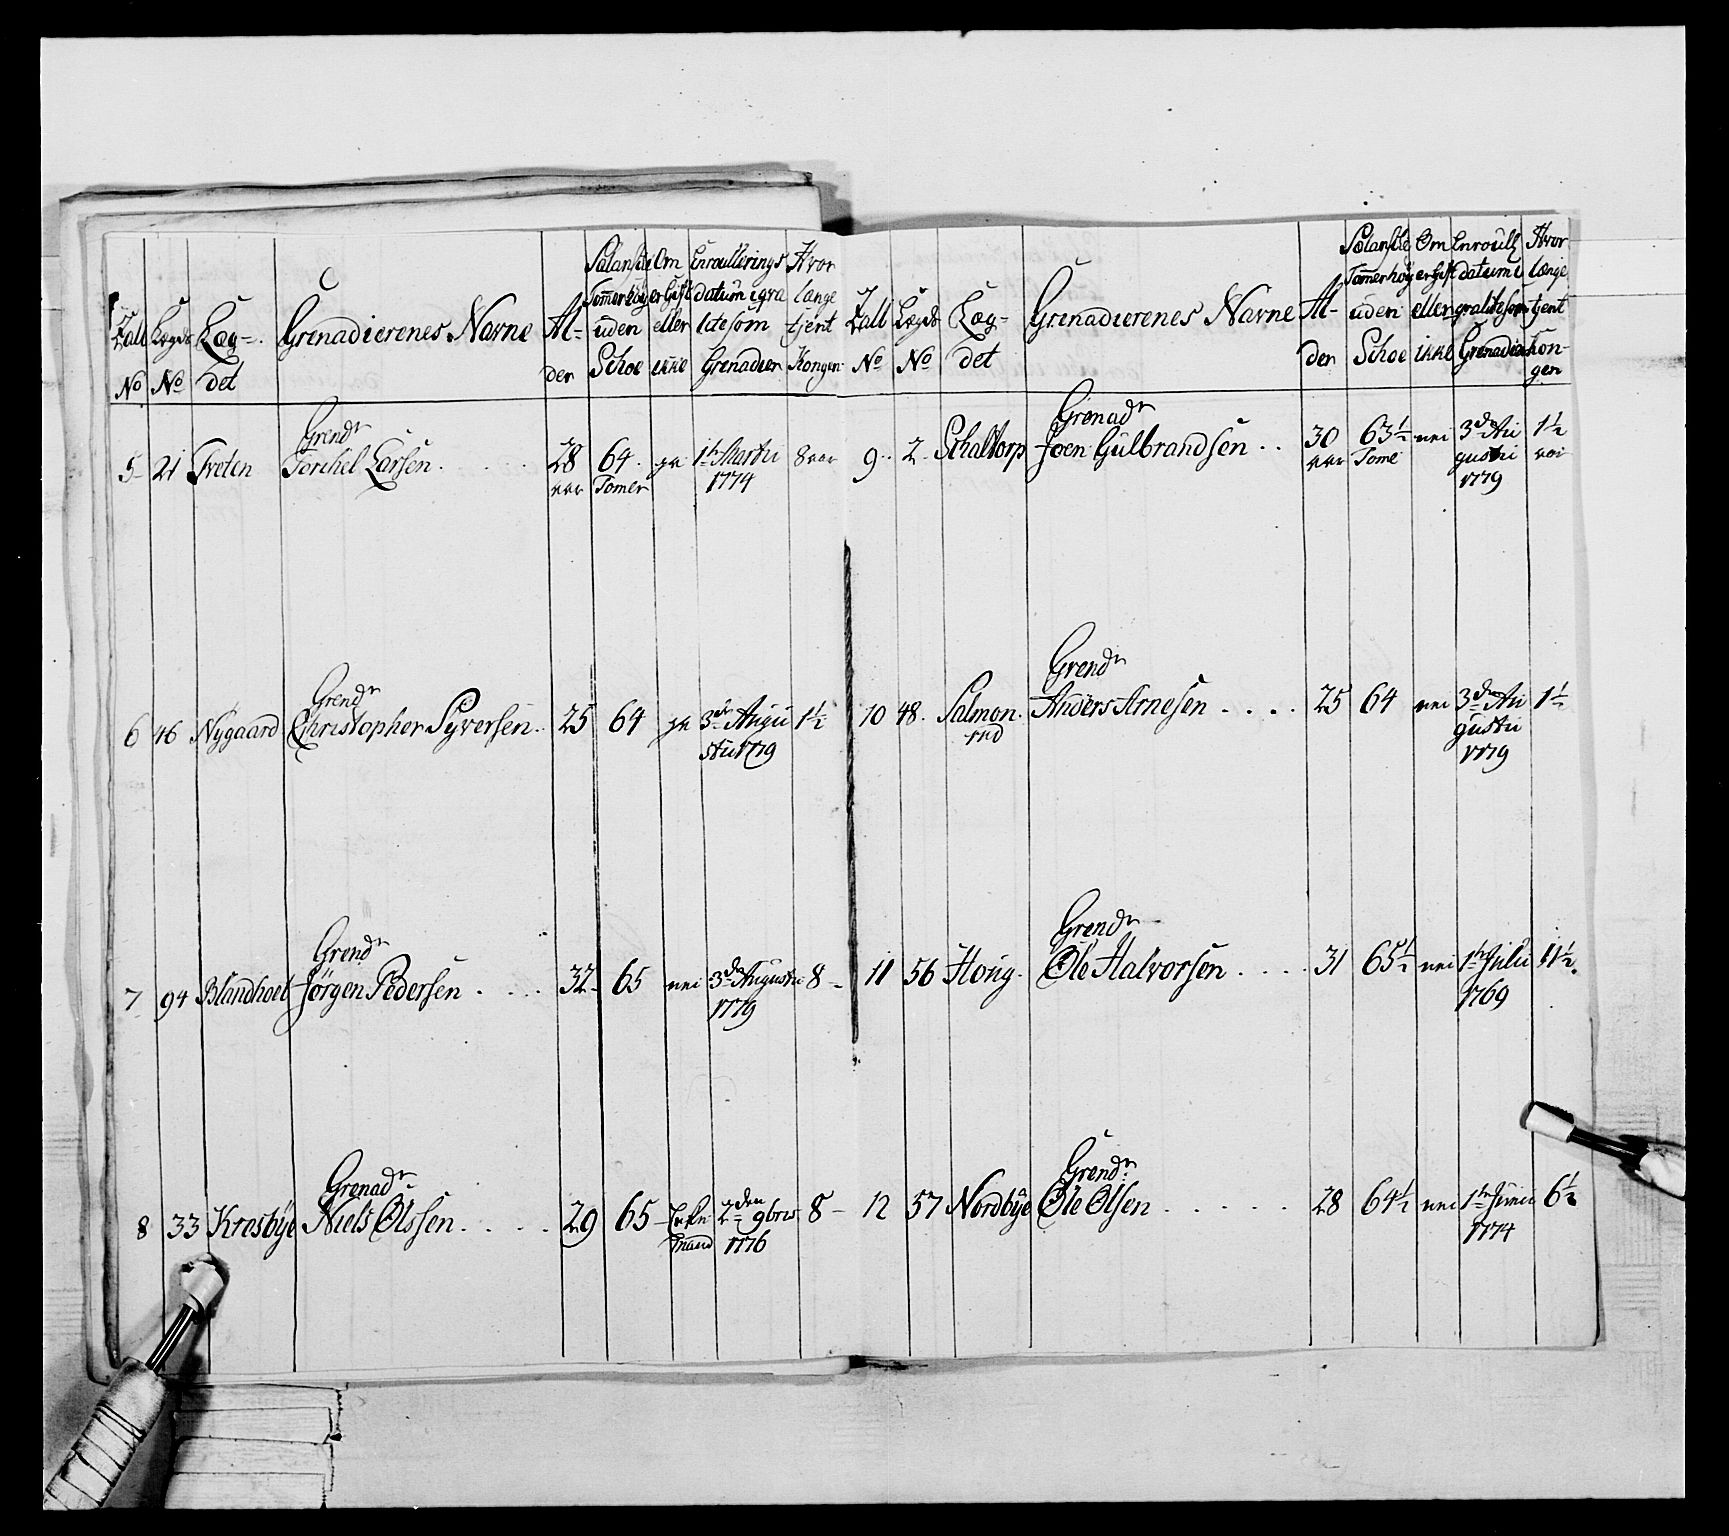 Tall No
Lægds No
Læg=det
Grenadierenes Navne
Al-der
uden Schoe
Om er Gift eller ikke
Enroullerings datum i qvalite som Grenadier
Hvor længe tjent Kongen
5 21 Treten Grendr Torchel Larsen 28 aar 64 Tomer ja 1te Martii 1774 8 aar
6 46 Nÿgaard Grendr Christopher Syversen 25 64 ja 3de Augustii 1779 1½
7 94 Grendr Jörgen Pedersen 32 65 nei 3de Augustii 1779 8
8 33 Kresbÿe Grenadr Niels Olssen 29 65 Enkemand 2den 9bris 1776 8
Tall No
Lægds No
Læg=det
Grenadierenes Navne
Al-der
uden Schoe
Om er Gift eller ikke
Enroull datum i qvalite som Grenadier
Hvor længe tjent Kongen
9 2 Grenadr Joen Gulbrandsen 30 aar 63½ Tome nei 3de Augustii 1779 1½ aar
10 48 Salmonrud Grendr Anders Arnesen 25 64 nei 3de Augustii 1779 1½
11 56 Houg Grendr Ole Halvorsen 31 65½ nei 1te Julii 1769 11½
12 57 Nordbÿe Grendr Ole Olsen 28 64½ nei 1te Junii 1774 6½